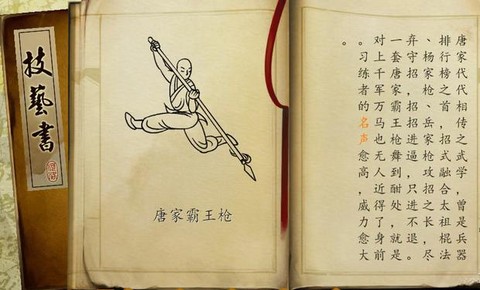 技藝書
唐家霸王枪
唐家代代相传之武学，曾是兵器
排行榜之首，招式融合太祖棍法
、杨家枪、岳家枪攻招之长，尽
弃守招，招招进逼，只进不退。
一套唐家霸王枪舞到酣处，就是
对上千军万马也无人近得了身前
。习练者的名声愈高，威力愈大
。